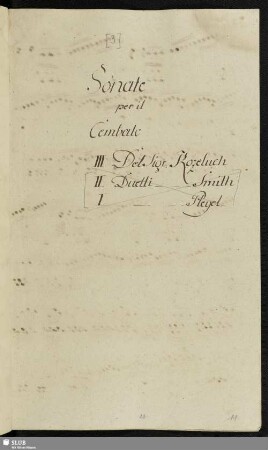 [3]
Sonate
per il
Cembalo
III Del Sigr. Kozeluch
II Duetti — Smith
I — Pleyel
SLUB